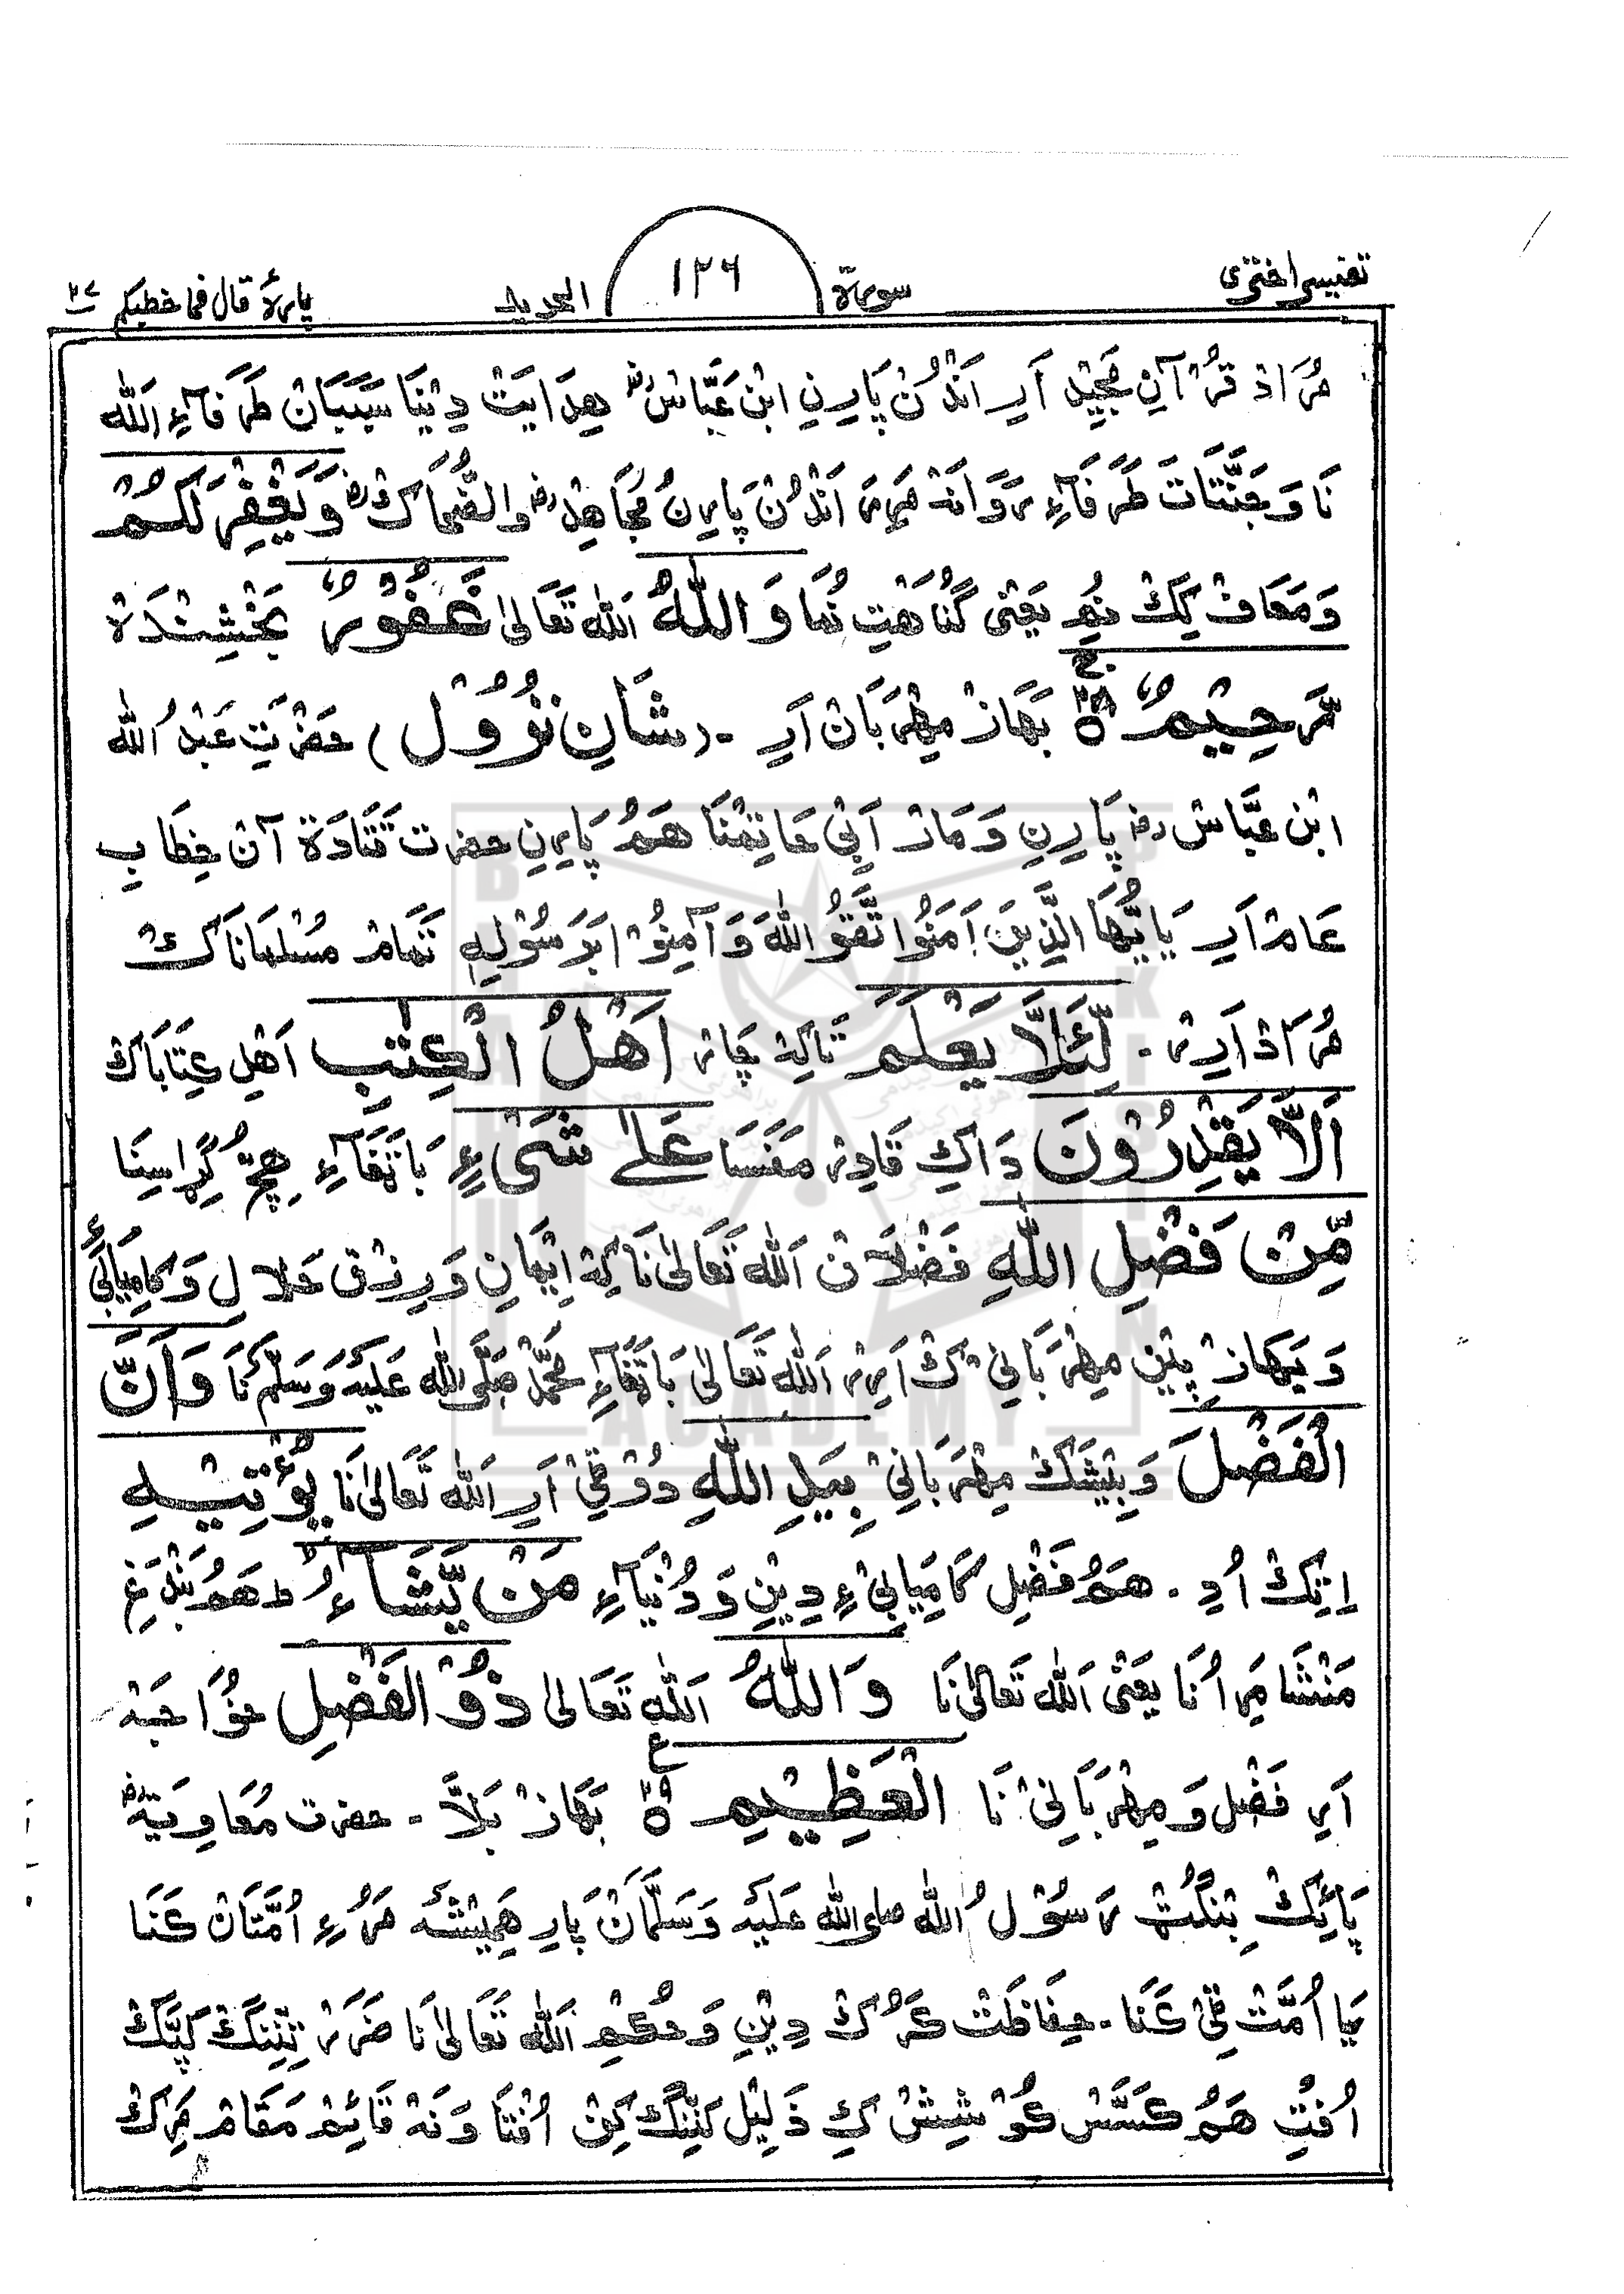 تفسیر اختری سورة ۱۳۶ الحدید پارۂ قال فما خطبکم ۲۷
مُرَاد قُرْآنِ مَجِیْد اَرِ اَنْدُن پَارِنِ ابْنِ عَبَّاس هِدَایَتْ دِیْنَا سَبَبَانْ طَرَفَآءِ اَللّٰه
نَا وَ جَنَّتَاتَ طَرَفَآءِ رَوَانَهْ مَرِیرَ اَنْدُنْ پَارِنُ مُجَاهِدْ رض وَالضَّحَاکْ رض وَیَغْفِرْ لَکُمْ
وَ مَعَافْ کِکْ نُمِ یَعْنِی گُنَاهْتِ نُمَا وَ اللّٰهُ اَللّٰه تَعَالیٰ غَفُوْرٌ بَخْشِنْدَهْ
رَّحِیْمٌ ۲۸ بَهَازْ مِهْرَبَانْ اَرِ ـ (شَانِ نُزُوْل) حَضْرَتِ عَبْدُ اللّٰه
ابْنِ عَبَّاس رض پَارِنِ وَ مَارْ اَبِیْ حَاتِمْنَا هَمُ پَایِرنِ حضرت قَتَادَة آنْ خِطَابِ
عَامْ اَرِ یَاَیُّهَا الَّذِیْنَ اٰمَنُوا تَّقُوا اللّٰهَ وَ آمِنُوْا بِرَسُوْلِهٖ تَمَامْ مُسْلمَانَاکْ
مُرَادْ اَرِرْ ـ لِّئَلَّا یَعْلَمَ تَاکِهْ چَارْ اَهْلُ الْکِتٰبِ اَهْلِ کِتَابَاکْ
اَلَّا یَقْدِرُوْنَ دَاکِ قَادِرْ مَفَسَا عَلٰی شَیْءٍ بَاتَفَآءِ هِچُّ گِرَاسِنَا
مِّنْ فَضْلِ اللّٰهِ فَضْلَانْ اَللّٰه تَعَالیٰ نَا کِهْ اِیْمَانِ وَ رِزْقِ حَلَال وَ کَامِیَابِیْ
وَ بَهَازْ پِیْنِ مِهْرَبَانِیْکْ اَرِرْ اَللّٰه تَعَالیٰ بَاتَفَآءِ مُحَمَّدْ صَلَّی اللّٰه عَلَیْهِ وَسَلَّمْ نَا وَاَنَّ
الْفَضْلَ وَ بِیْشَکْ مِهْرَبَانِیْ بِیَدِ اللّٰهِ دُوْ قِیْ اَرِ اَللّٰه تَعَالیٰ نَا یُؤْتِیْهِ
اِتِکْ اُدِ ـ هَمُ فَضْلِ کَامِیَابِیْءِ دِیْنِ وَ دُنْیَآءِ مَنْ یَّشَآءُ ط هَمُ بَنْدَغِ
مَنْشَا مَرِ اُنَا یَعْنِی اَللّٰه تَعَالیٰ نَا وَاللّٰهُ اَللّٰه تَعَالیٰ ذُو الْفَضْلِ خُوَاجَهْ
اَرِ فَضْل وَ مِهْرَبَانِیْ نَا الْعَظِیْمِ ۲۹ ع بَهَازْ بَلَّا ـ حضرت مُعَاوِیَةْ رض
پَائِکْ بِنْگُتْ رَسُوْلُ اللّٰه صلی اللّٰه عَلَیْهِ وَسَلَّمَانْ پَارِ هَمِیْشَهْ مَرُءِ اُمَّتَانْ کَنَا
یَا اُمَّتْ قِیْ کَنَا ـ حِفَاظَتْ کَرُکْ دِیْنِ وَ حُکْمِ اَللّٰه تَعَالیٰ نَا ضَرَرْ تِنِنْگْ کَپَّکْ
اُفْتِ هَمُ کَسَّسْ کُوْشِشْ کِ ذَلِیْل کَنِنْگْ کِنْ اُفْتَا وَ نَهْ قَائِمْ مَقَامْ مَرِکْ